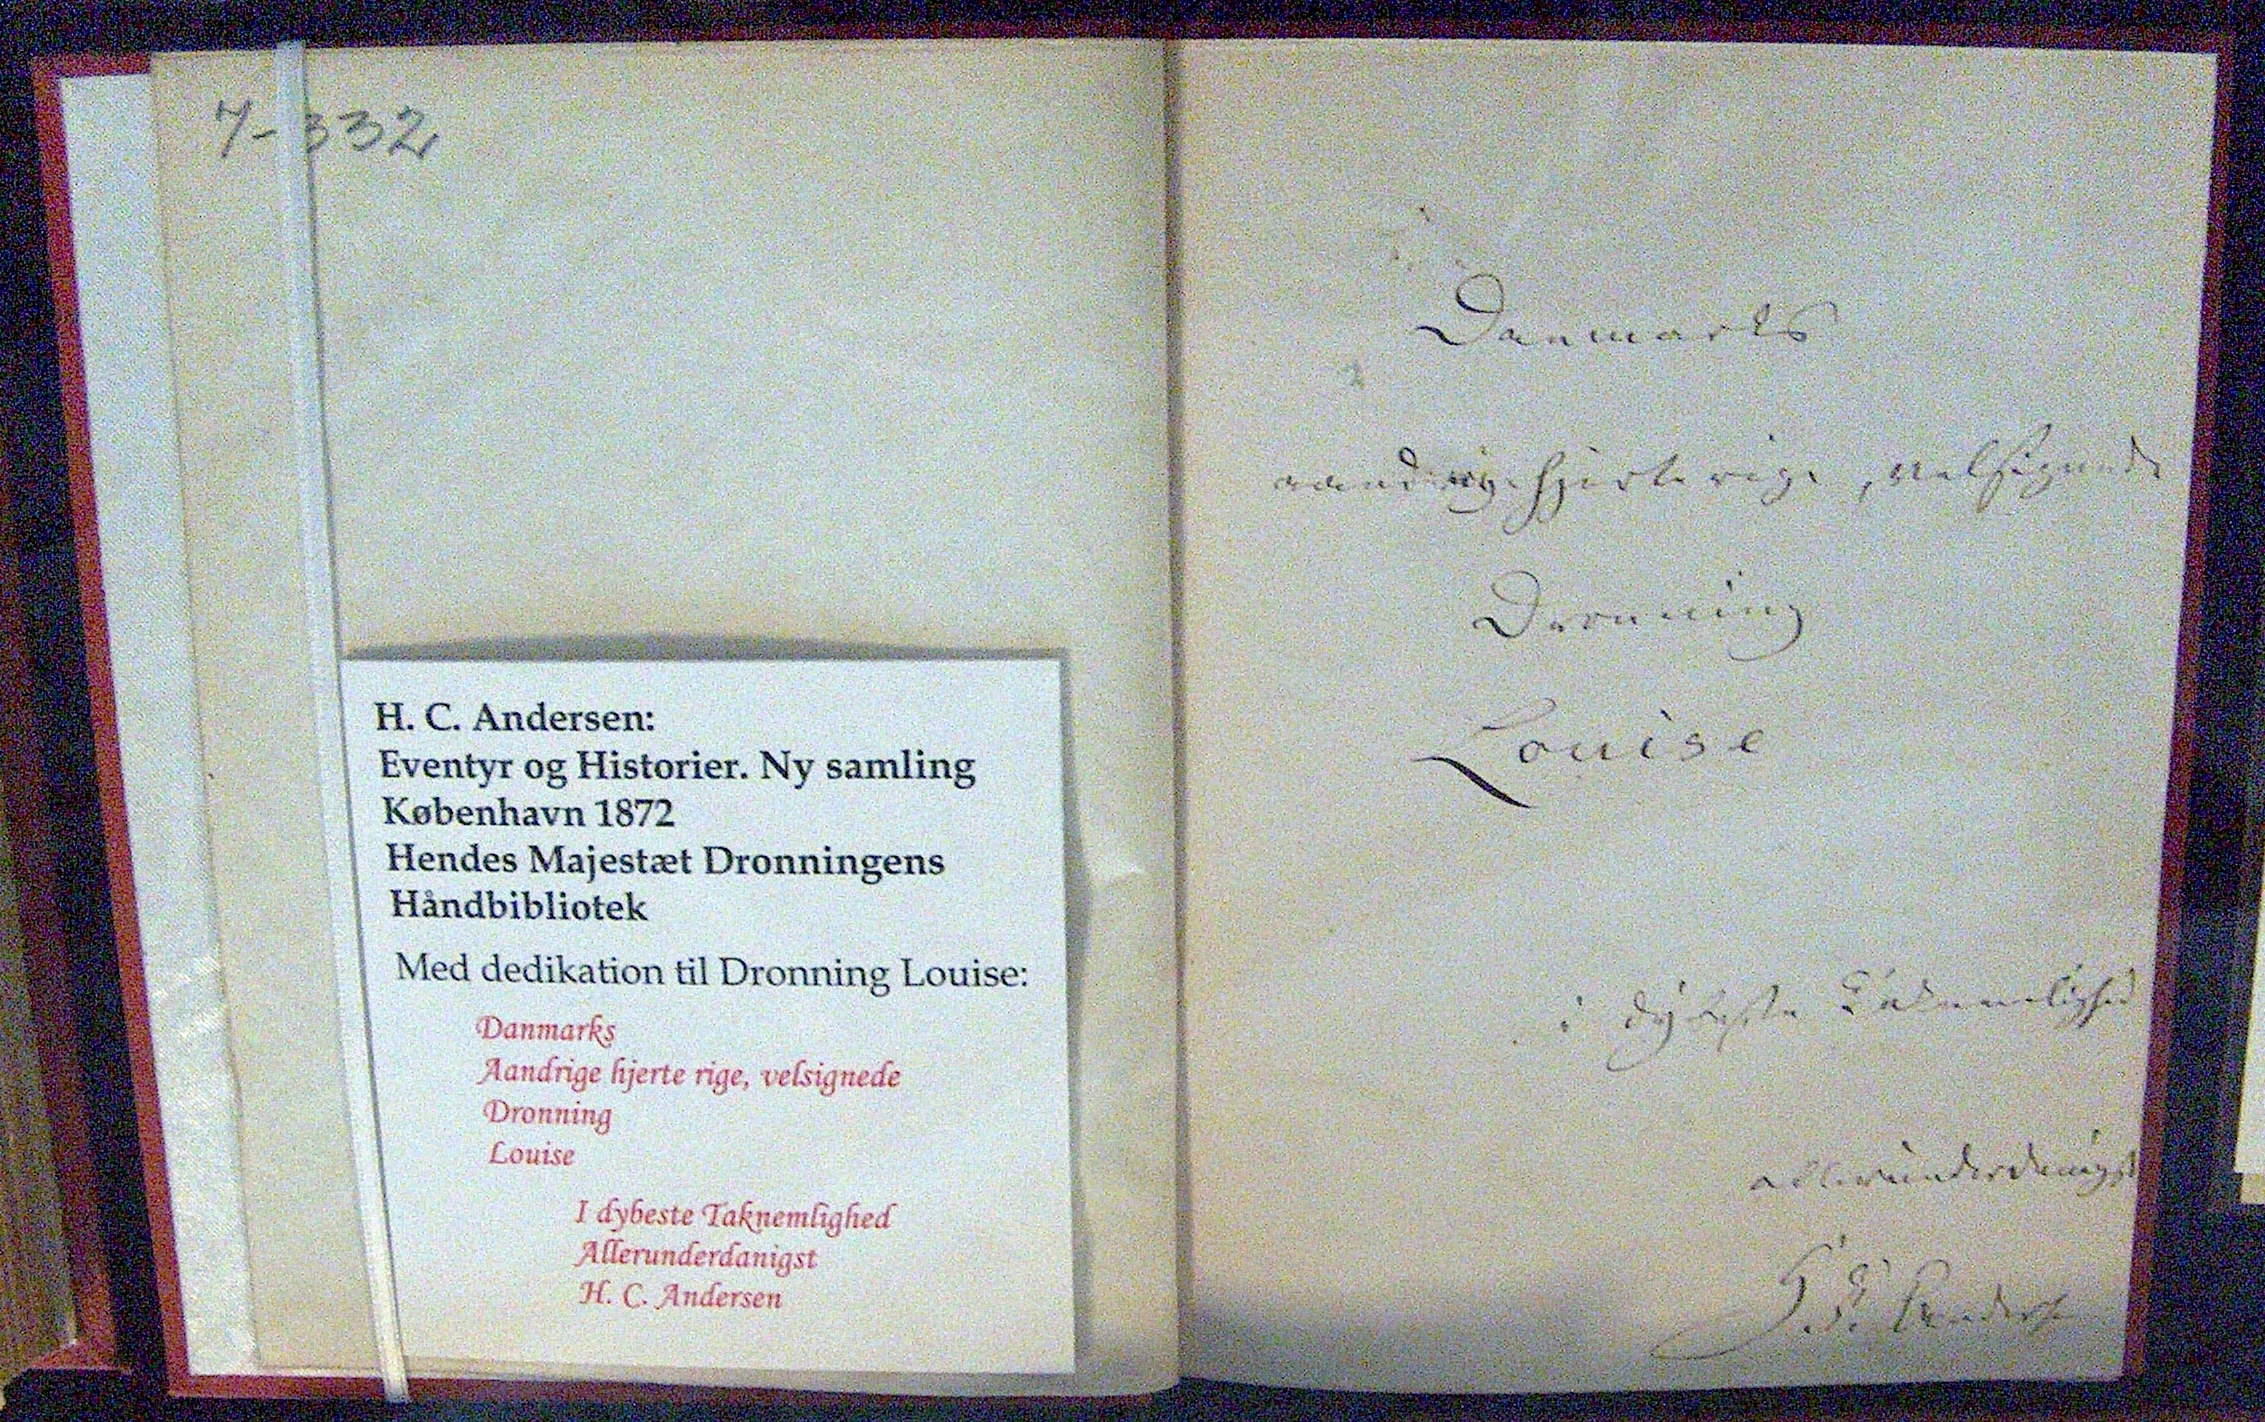 7-332
H. C. Andersen:
Eventyr og Historier. Ny samling
København 1872
Hendes Majestæt Dronningens
Håndbibliotek
Med dedikation til Dronning Louise:
Danmarks
Aandrige hjerte rige, velsignede
Dronning
Louise
I dybeste Taknemlighed
Allerunderdanigst
H. C. Andersen
Danmarks
aandrige hjerte rige, velsignede
Dronning
Louise
i dybeste Taknemlighed
allerunderdanigst
H. C. Andersen